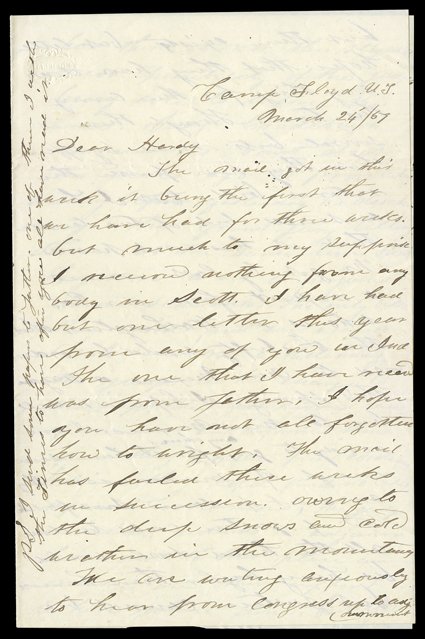 Camp Floyd U.T.
March 24/59
Dear Hardy
The mail got in this
week it being the first that
we have had for three weeks.
but much to my supprise
I received nothing from any
body in Scott. I have had
but one letter this year
from any of you in Ind
The one that I have recd
was from father. I hope
you have not all forgotten
how to wright. The mail
has failed three weeks
in succession. owing to
the deep snows and cold
weather in the mountains
We are waiting anxiously
to hear from Congress up to adj
ournment
P.S. I send some papers to father one of them I wish
the